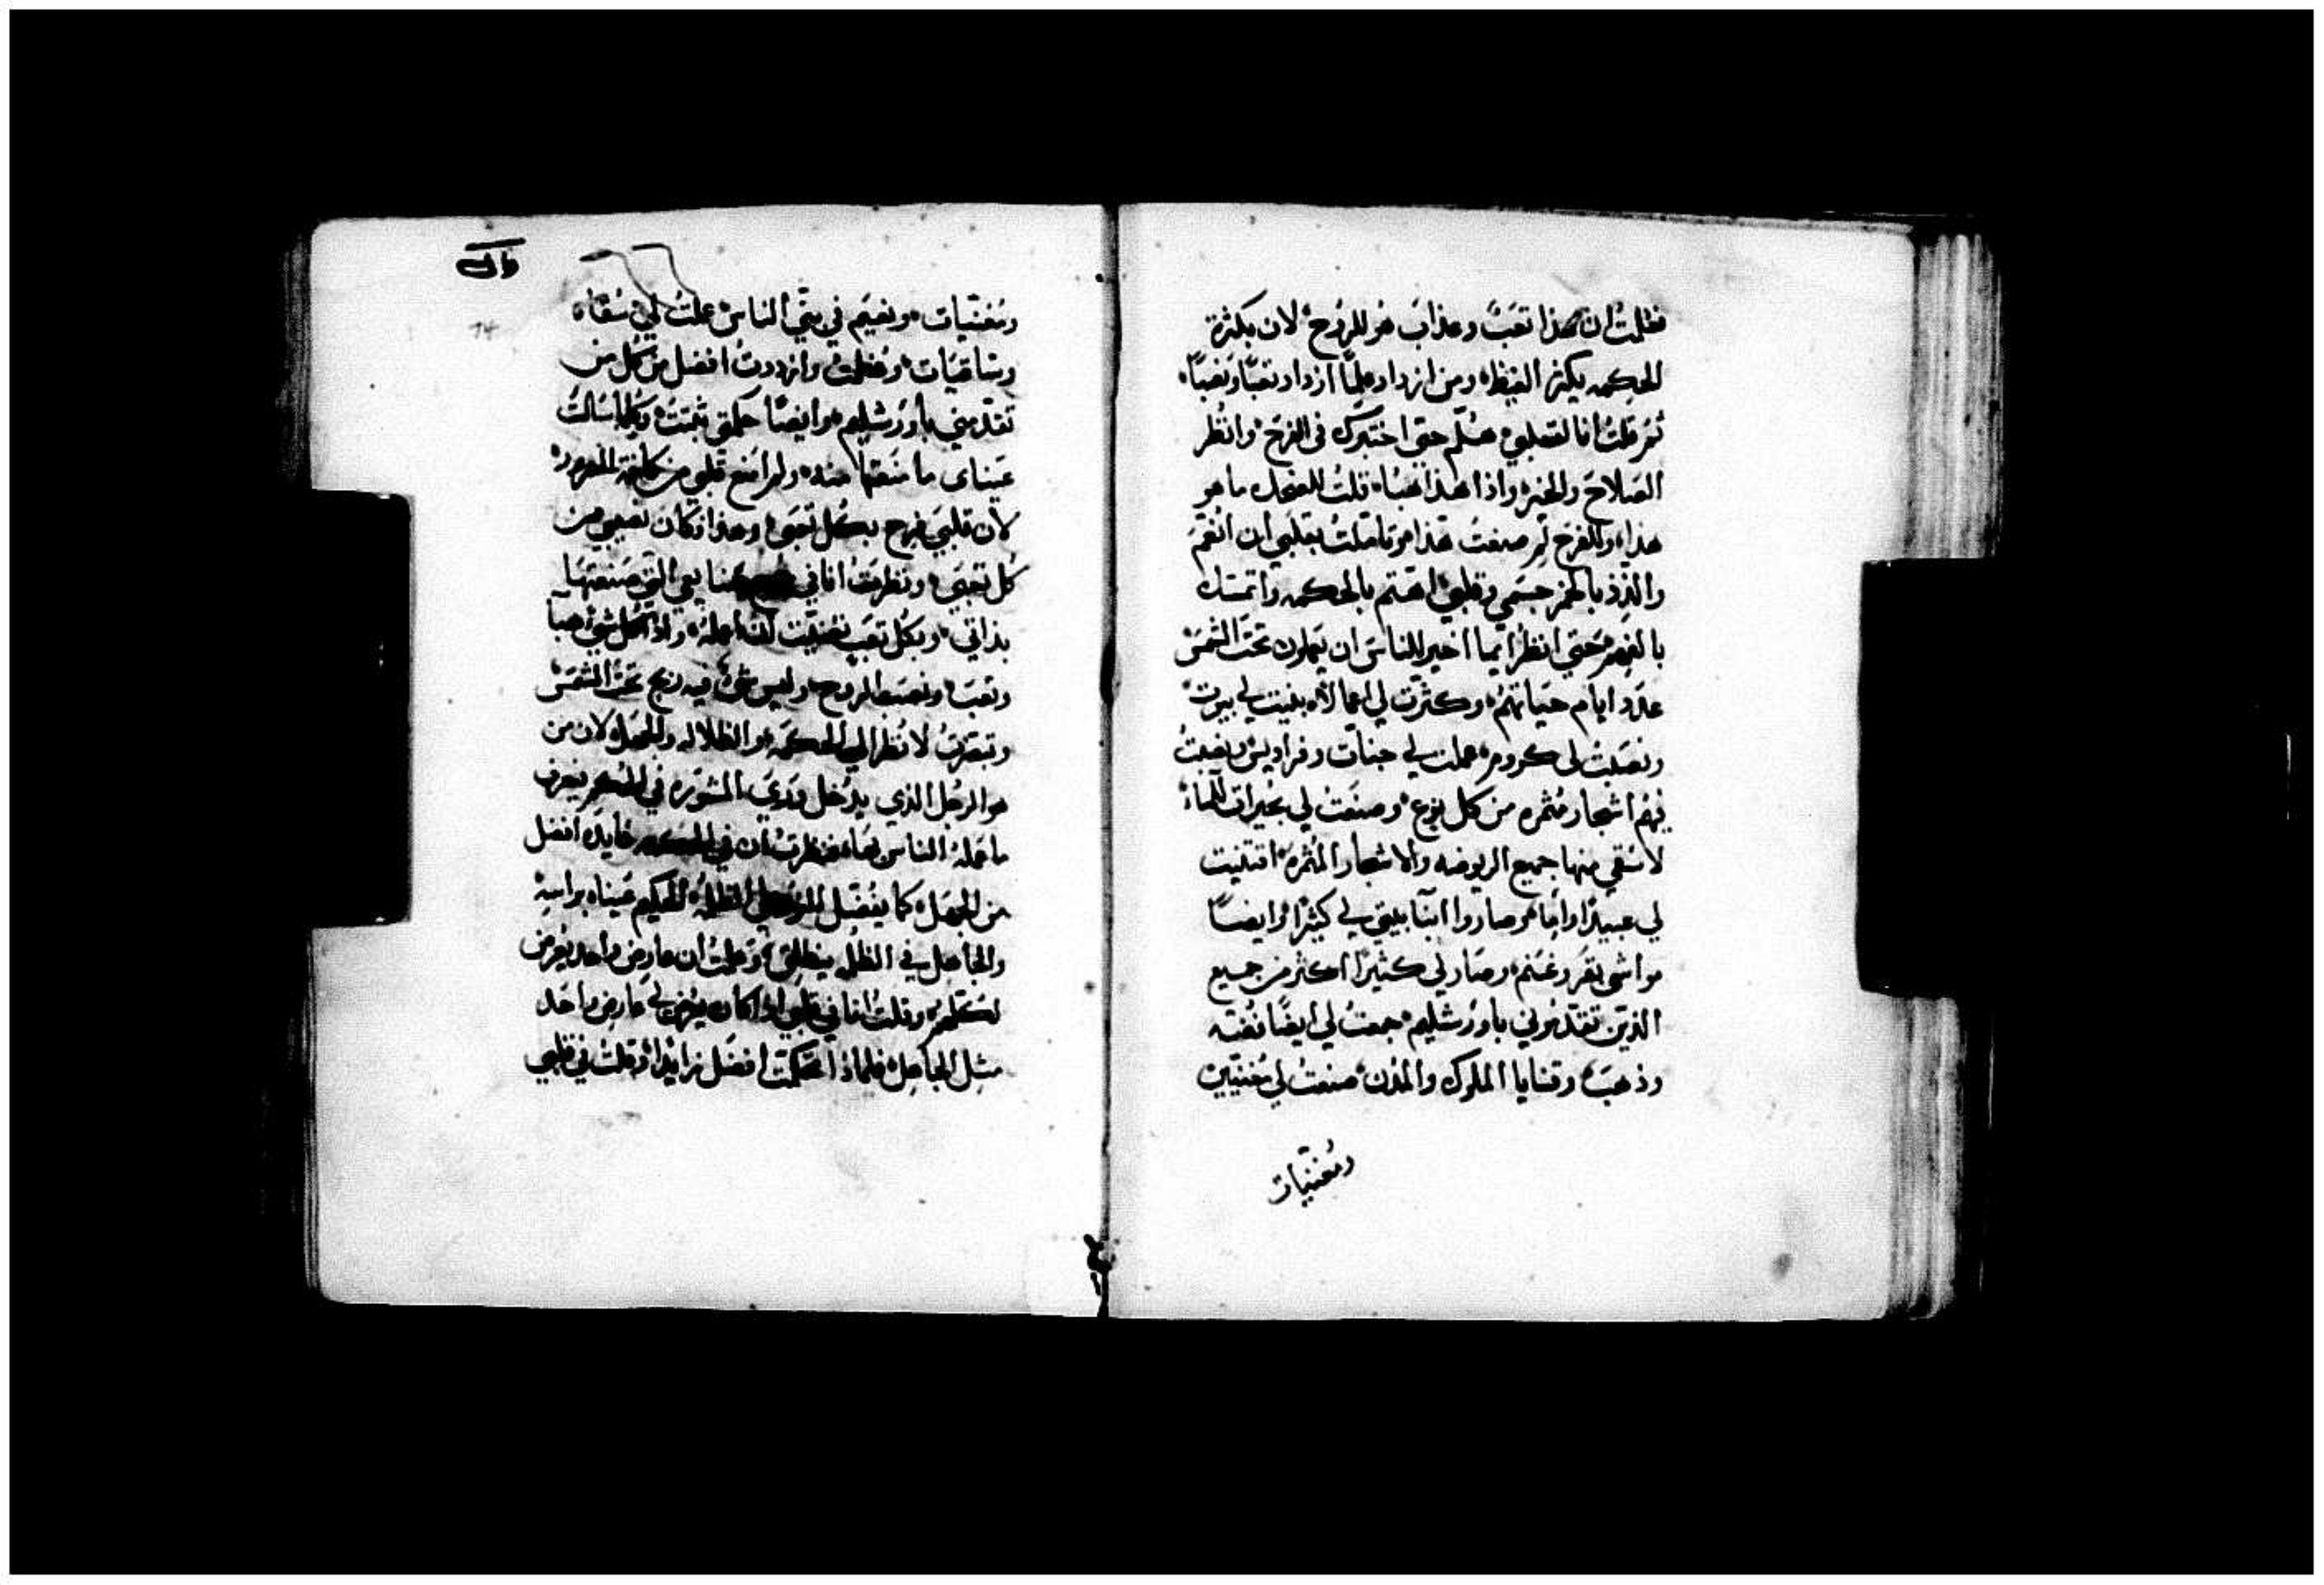 فعلمت ان هذا تعبً وعذاب هو للروح لان بكثرة
الحكمه يكثر الغيظ ومن ازداد علمًا ازداد تعبًا ونصبًا
ثم قلت انا لقلبي هلم حتى اختبرك في الفرح وانظر
الصلاح والخير واذا هذا هبا قلت للضحك ما هو
هذا وللفرح لم صنعت هذا وتاملت بقلبي ان انعم
والذذ بالخمر جسمي وقلبي اهتم بالحكمه واتمسك
بالفهم حتى انظر ايما اخير للناس ان يعملون تحت الشمس
عدد ايام حياتهم وكثرت لي اعمالاً بنيت لي بيوت
ونصبت لي كروم عملت لي جنات وفراديس ونصبت
فيهم اشجار مثمره من كل نوع وصنعت لي بحيرات للماء
لاسقي منها جميع الروضه والاشجار المثمره اقتنيت
لي عبيدًا واماء وصاروا ابنا بيتي لي كثيرًا وايضًا
مواشي بقر وغنم وصار لي كثيرًا اكثر من جميع
الذين تقدموني باورشليم جمعت لي ايضًا فضه
وذهب وقنايا الملوك والمدن صنعت لي مغنيين
ومغنيات
ومغنيات ونعيم في بني الناس عملت لي سقاه
وساقيات وعظمت وازددت افضل من كل من
تقدمني باورشليم وايضًا حكمتي ثبتت وكلما سالت
عيناي ما منعتها منه ولم امنع قلبي من كافة السرور
لان قلبي فرح بكل تعبي وهذا كان نصيبي من
كل تعبي ونظرت انا في صنايعي التي صنعتها
بذاتي وبكل تعب تعنيت ان اعمله واذا كل شي هبا
وتعب ونصب الروح وليس شي فيه ربح تحت الشمس
وتبصرت لانظر الي الحكمه والظلاله والجهل لان من
هو الرجل الذي يدخل وري المشوره في يعرف
ما عمله الناس بها فنظرت ان في الحكمه فايده افضل
من الجهل كما يفضل الضو علي الظلمه الحكيم عيناه براسه
والجاهل في الظلمه ينطلق وعلمت ان عارض واحد يعرض
لكلهم وقلت انا في قلبي اذا كان يعرض لي عارض واحد
مثل الجاهل فلماذا احكمت افضل زايدًا وقلت في قلبي